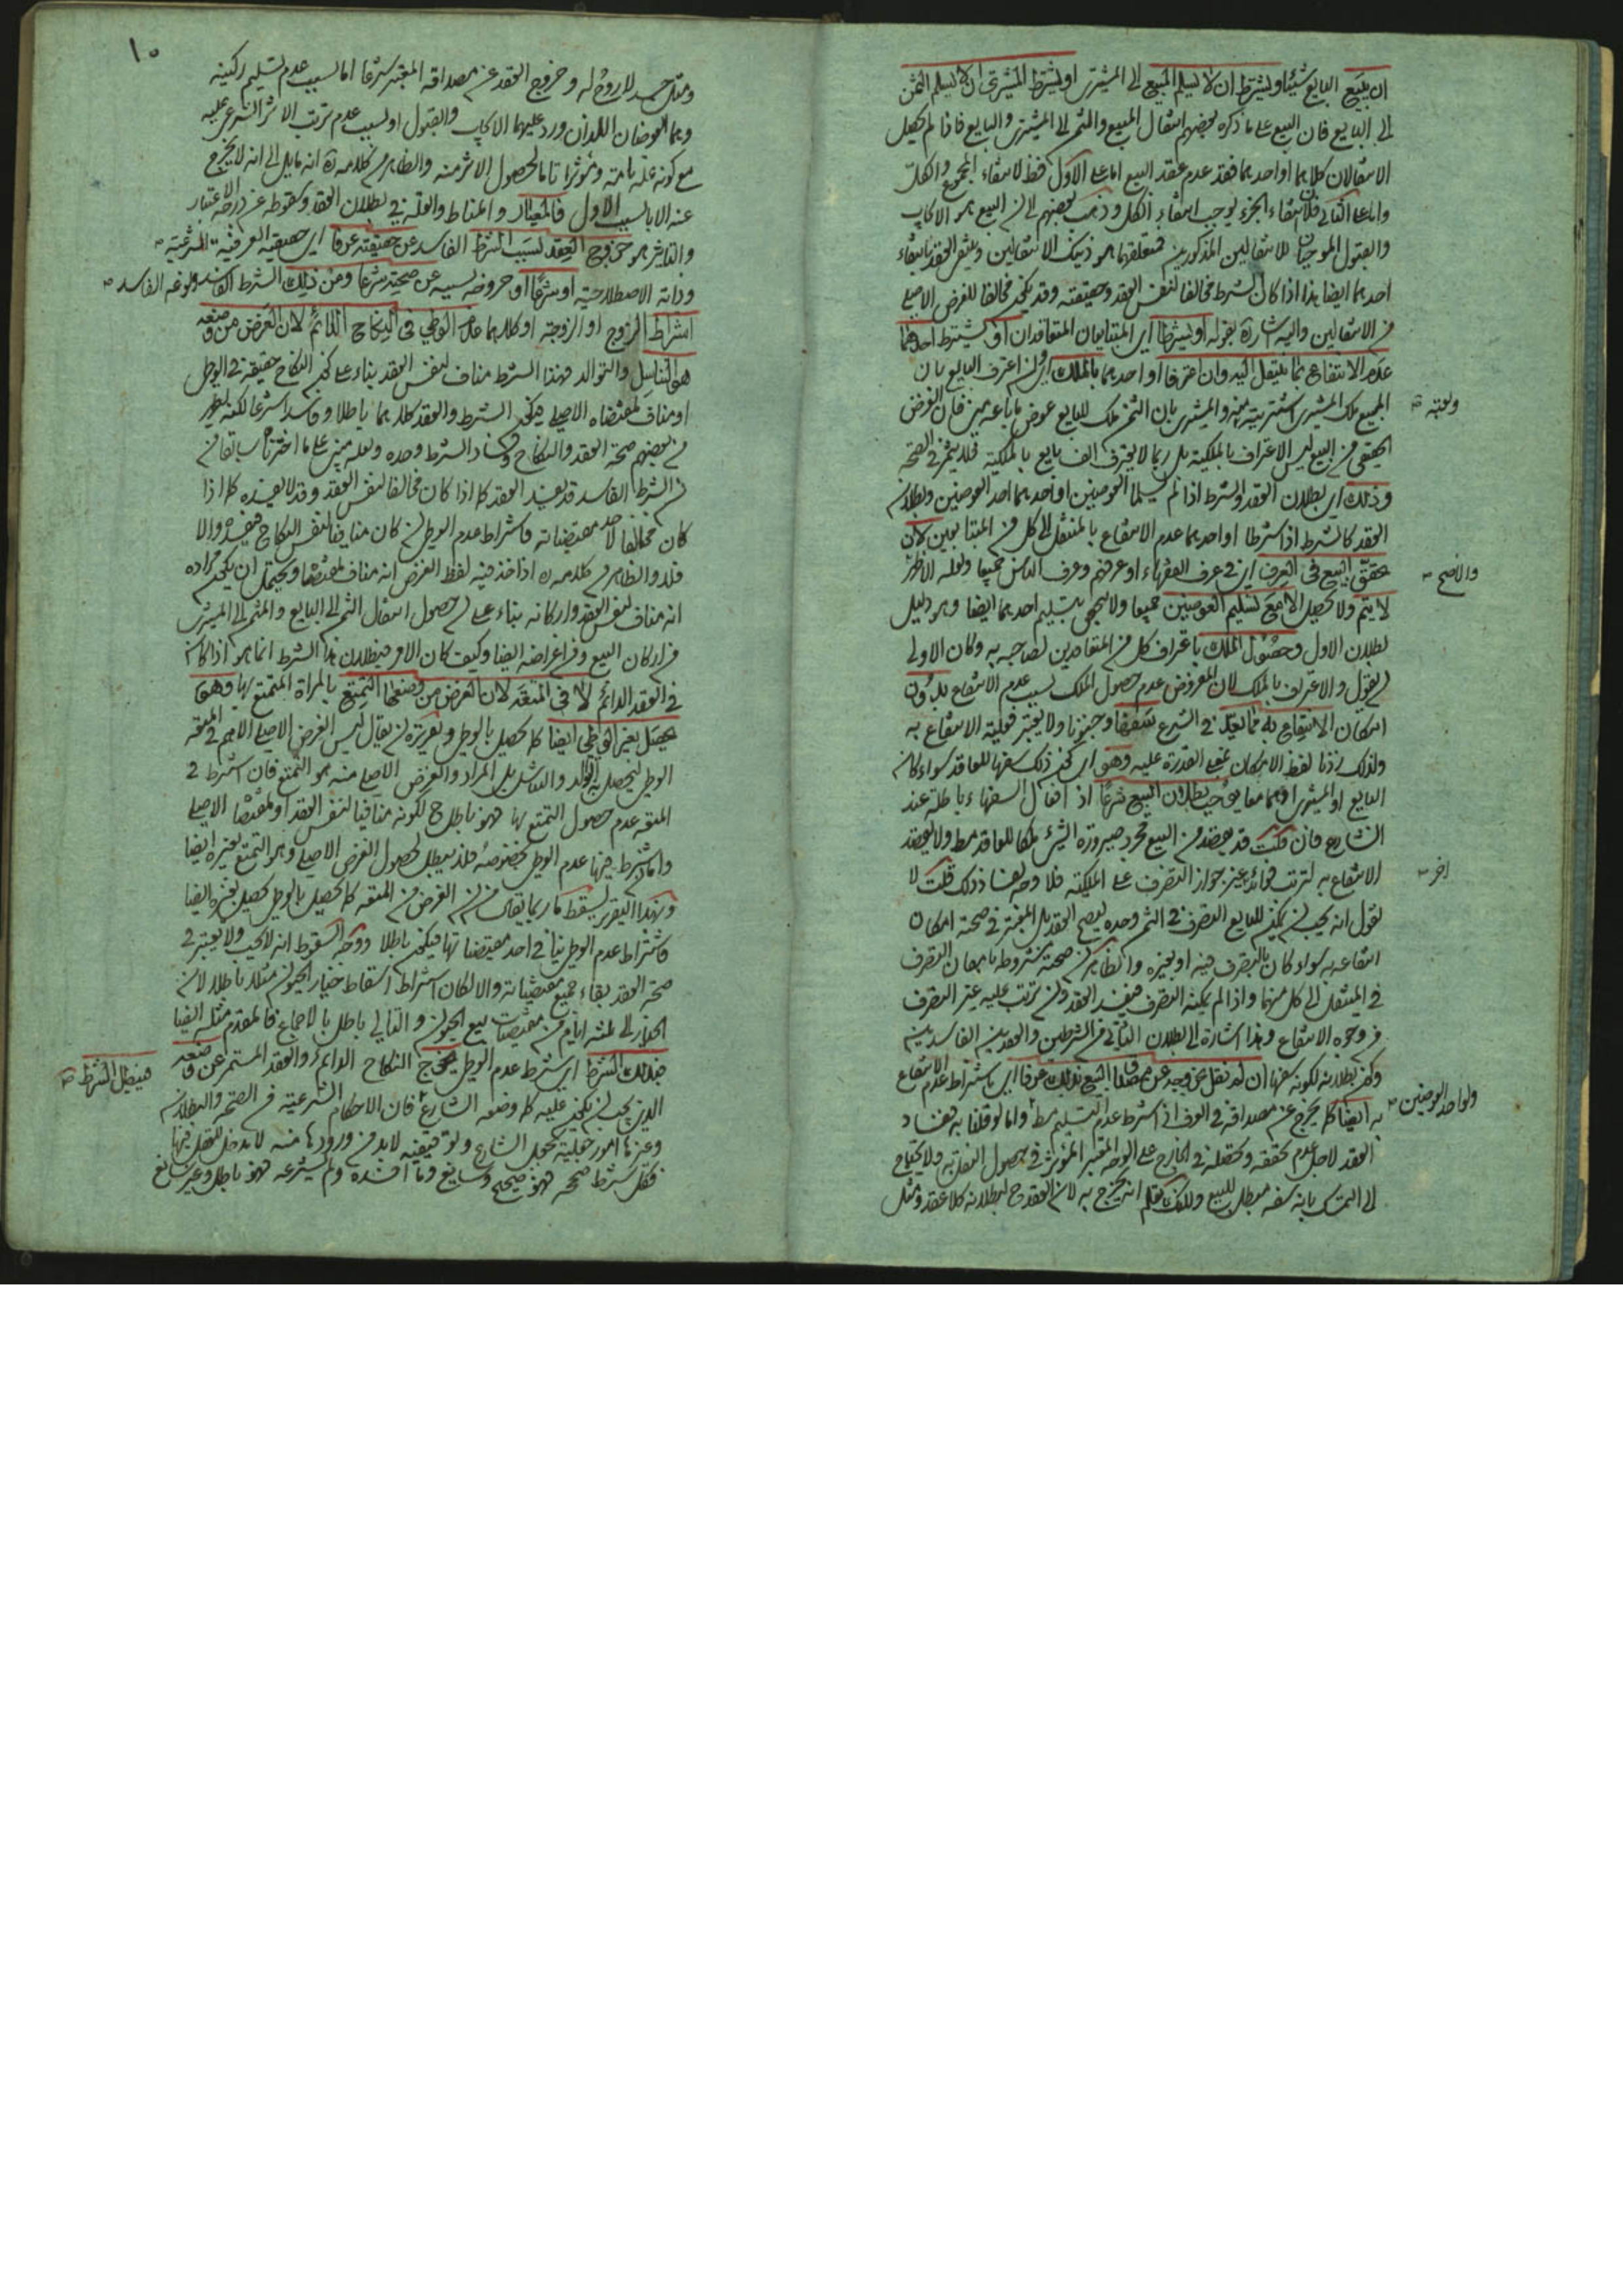 ان يبيع البايع شيئا ويشترط ان لا يسلم المبيع الى المشتري او يشترط المشتري ان لا يسلم الثمن
الى البايع فان البيع على ما ذكره بعضهم انتقال المبيع والثمن الى المشتري والبايع فاذا لم يحصل
الانتقالان كلاهما او احدهما فقد عدم عقد البيع اما على الاول فظ لانتفاء المجموع والكل
واما على الثاني فلان انتفاء الجزء يوجب انتفاء الكل وذهب بعضهم الى ان البيع هو الايجاب
والقبول الموجبان للانتقالين المذكورين فمتعلقهما هو ذينك الانتقالين وينتفي العقد بانتفاء
احدهما ايضا هذا اذا كان الشرط مخالفا لنفس العقد وحقيقته وقد يكون مخالفا للغرض الاصلي
من الانتقالين واليه اشار ره بقوله او يشترطا اي المتبايعان المتعاقدان او يشترط احدهما
عدم الانتفاع بما ينتقل اليه وان اعترفا او احدهما بالملك اي وان اعترف البايع بان
المبيع ملك المشتري والمشتري بان الثمن ملك للبايع عوض ما باعه فان الغرض
الحقيقي من البيع ليس الاعتراف بالملكية بل ربما لا يعترف البايع بالملكية فلا يثمر في الصحة
وذلك اي بطلان العقد والشرط اذا لم يسلما العوضين او احدهما احد العوضين وبطلان
العقد كالشرط اذا شرطا او احدهما عدم الانتفاع بالمنتقل الى كل من المتبايعين لان
تحقق البيع في العرف اي في عرف الفقهاء او عرفهم وعرف الناس جميعا ولعله الاظهر
لا يتم ولا يحصل الا مع تسليم العوضين جميعا ولا يكفي تسليم احدهما ايضا وهو دليل
لبطلان الاول وحصول الملك باعتراف كل من المتعاقدين لصاحبه به وكان الاولى
ان يقول والاعتراف بالملك لان المفروض عدم حصول الملك بسبب عدم الانتفاع بدون
امكان الانتفاع به مما يعد في الشرع سفها وجنونا ولا يعتبر فعلية الانتفاع به
ولذلك زدنا لفظ الامكان بمعنى القدرة عليه وهو اي كون ذلك سفها للعاقد سواء كان
البايع او المشتري او هما معا يوجب بطلان البيع شرعا اذ افعال السفهاء باطلة عند
الشارع فان قلت قد يقصد من البيع مجرد صيرورة الشيء ملكا للعاقد فقط ولا يقصد
الانتفاع به لترتب فائدة غير جواز التصرف على الملكية فلا وجه لفساد ذلك قلت لا
نقول انه يجب ان يكون للبايع التصرف في الثمن وحده ليصح العقد بل المعتبر في صحته امكان
انتفاعه به سواء كان بالتصرف فيه او بغيره والظاهر ان صحته مشروطة بامكان التصرف
في المنتقل الى كل منهما واذا لم يمكنه التصرف فيفسد العقد وان ترتب عليه غير التصرف
من وجوه الانتفاع وهذا اشارة الى بطلان الثاني من الشرطين والعقدين الفاسدين
وكون بطلانه لكونه سفها ان لم نقل بخروجه عن مصداق البيع بذلك عرفا اي باشتراط عدم الانتفاع
به ايضا كما يخرج عن مصداقه في العرف ان اشترط عدم التسليم فقط واما لو قلنا به ففساد
العقد لاجل عدم تحققه وتحصله في الخارج على الوجه المعتبر المؤثر في حصول النقل به ولا يحتاج
الى التمسك بانه سفه مبطل للبيع وللملك انه يخرج به لان العقد ح لبطلانه كلا عقد ومثل
ولعينه
والاصح
اخر
ولو احد العوضين
١٠
ومثل جسد لا روح له وخروج العقد عن مصداقه المعتبر شرعا اما بسبب عدم تسليم ركنيه
وهما العوضان اللذان ورد عليهما الايجاب والقبول او بسبب عدم ترتب الاثر الشرعي عليه
مع كونه علة تامة ومؤثرا تاما لحصول الاثر منه والظاهر من كلامه ره انه مايل الى انه لا يخرج
عنه الا بالسبب الاول فالمعيار والمناط والعلة في بطلان العقد وسقوطه عن درجة الاعتبار
والتاثير هو خروج العقد بسبب الشرط الفاسد عن حقيقته عرفا اي حقيقته العرفية المشرعية
وذاته الاصطلاحية او شرعا او خروجه بسببه عن صحته شرعا ومن ذلك الشرط الفاسد ونوعه الفاسد
اشتراط الزوج او الزوجة او كلاهما عدم الوطي في النكاح الدائم لان الغرض من وضعه
هو التناسل والتوالد فهذا الشرط مناف لنفس العقد بناء على كون النكاح حقيقة في الوطي
او مناف لمقتضاه الاصلي فيكون الشرط والعقد كلاهما باطلا وفاسدا شرعا لكنه يظهر
من بعضهم صحة العقد والنكاح وفساد الشرط وحده ولعله مبني على ما اخترناه سابقا من
ان الشرط الفاسد قد يفسد العقد كما اذا كان مخالفا لنفس العقد وقد لا يفسده كما اذا
كان مخالفا لاحد مقتضياته فاشتراط عدم الوطي ان كان منافيا لنفس النكاح فيفسده والا
فلا والظاهر من كلامه ره اذا اخذ فيه لفظ الغرض انه مناف لمقتضاه ويحتمل ان يكون مراده
انه مناف لنفس العقد واركانه بناء على ان حصول انتقال الثمن الى البايع والمثمن الى المشتري
من اركان البيع ومن اغراضه ايضا وكيف كان الامر فبطلان هذا الشرط انما هو اذا كان
في العقد الدائم لا في المتعة لان الغرض من وضعها التمتع بالمراة المتمتع بها وهو
يحصل بغير الوطي ايضا كما يحصل بالوطي وتقريره ان يقال ليس الغرض الاصلي الاهم في المتعة
الوطي ليحصل به الولد والتناسل بل المراد والغرض الاصلي منه هو التمتع فان اشترط في
المتعة عدم حصول التمتع بها فهو باطل ح لكونه منافيا لنفس العقد او لمقتضاه الاصلي
واما ان شرط فيها عدم الوطي بخصوصه فلا يبطل لحصول الغرض الاصلي وهو التمتع بغيره ايضا
وبهذا التقرير يسقط ما ربما يقال من ان الغرض من المتعة كما يحصل بالوطي يحصل بغيره ايضا
فاشتراط عدم الوطي ينافي احد مقتضياتها فيكون باطلا ووجه السقوط انه لا يجب ولا يعتبر في
صحة العقد بقاء جميع مقتضياته والا لكان اشتراط اسقاط خيار الحيوان مثلا باطلا لان
الخيار الى ثلثة ايام من مقتضيات بيع الحيوان والتالي باطل بالاجماع فالمقدم مثله ايضا
فبذلك الشرط اي شرط عدم الوطي يخرج النكاح الدائم والعقد المستمر عن وضعه
الذي يجب ان يكون عليه كما وضعه الشارع فان الاحكام الشرعية من الصحة والبطلان
وغيرهما امور جعلية بجعل الشارع وتوقيفية لابد من ورودها منه لا مدخل للعقل فيها
فكل شرط صححه فهو صحيح وسايغ وما افسده ولم يشرعه فهو باطل وغير سايغ
فيبطل الشرط